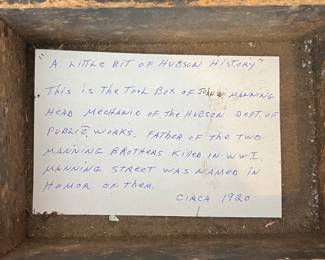 "A LITTLE BIT OF HUDSON HISTORY"
THIS IS THE TOOL BOX OF JOHN MANNING
HEAD MECHANIC OF THE HUDSON DEPT. OF
PUBLIC WORKS. FATHER OF THE TWO
MANNING BROTHERS KILLED IN WW I
MANNING STREET WAS NAMED IN
HONOR OF THEM.
CIRCA 1920